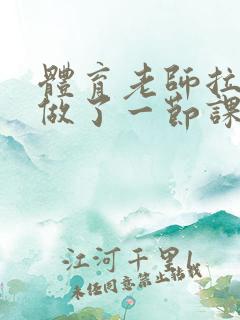 體育老師拉
做了一節課
江河千里
未经同意禁止转载